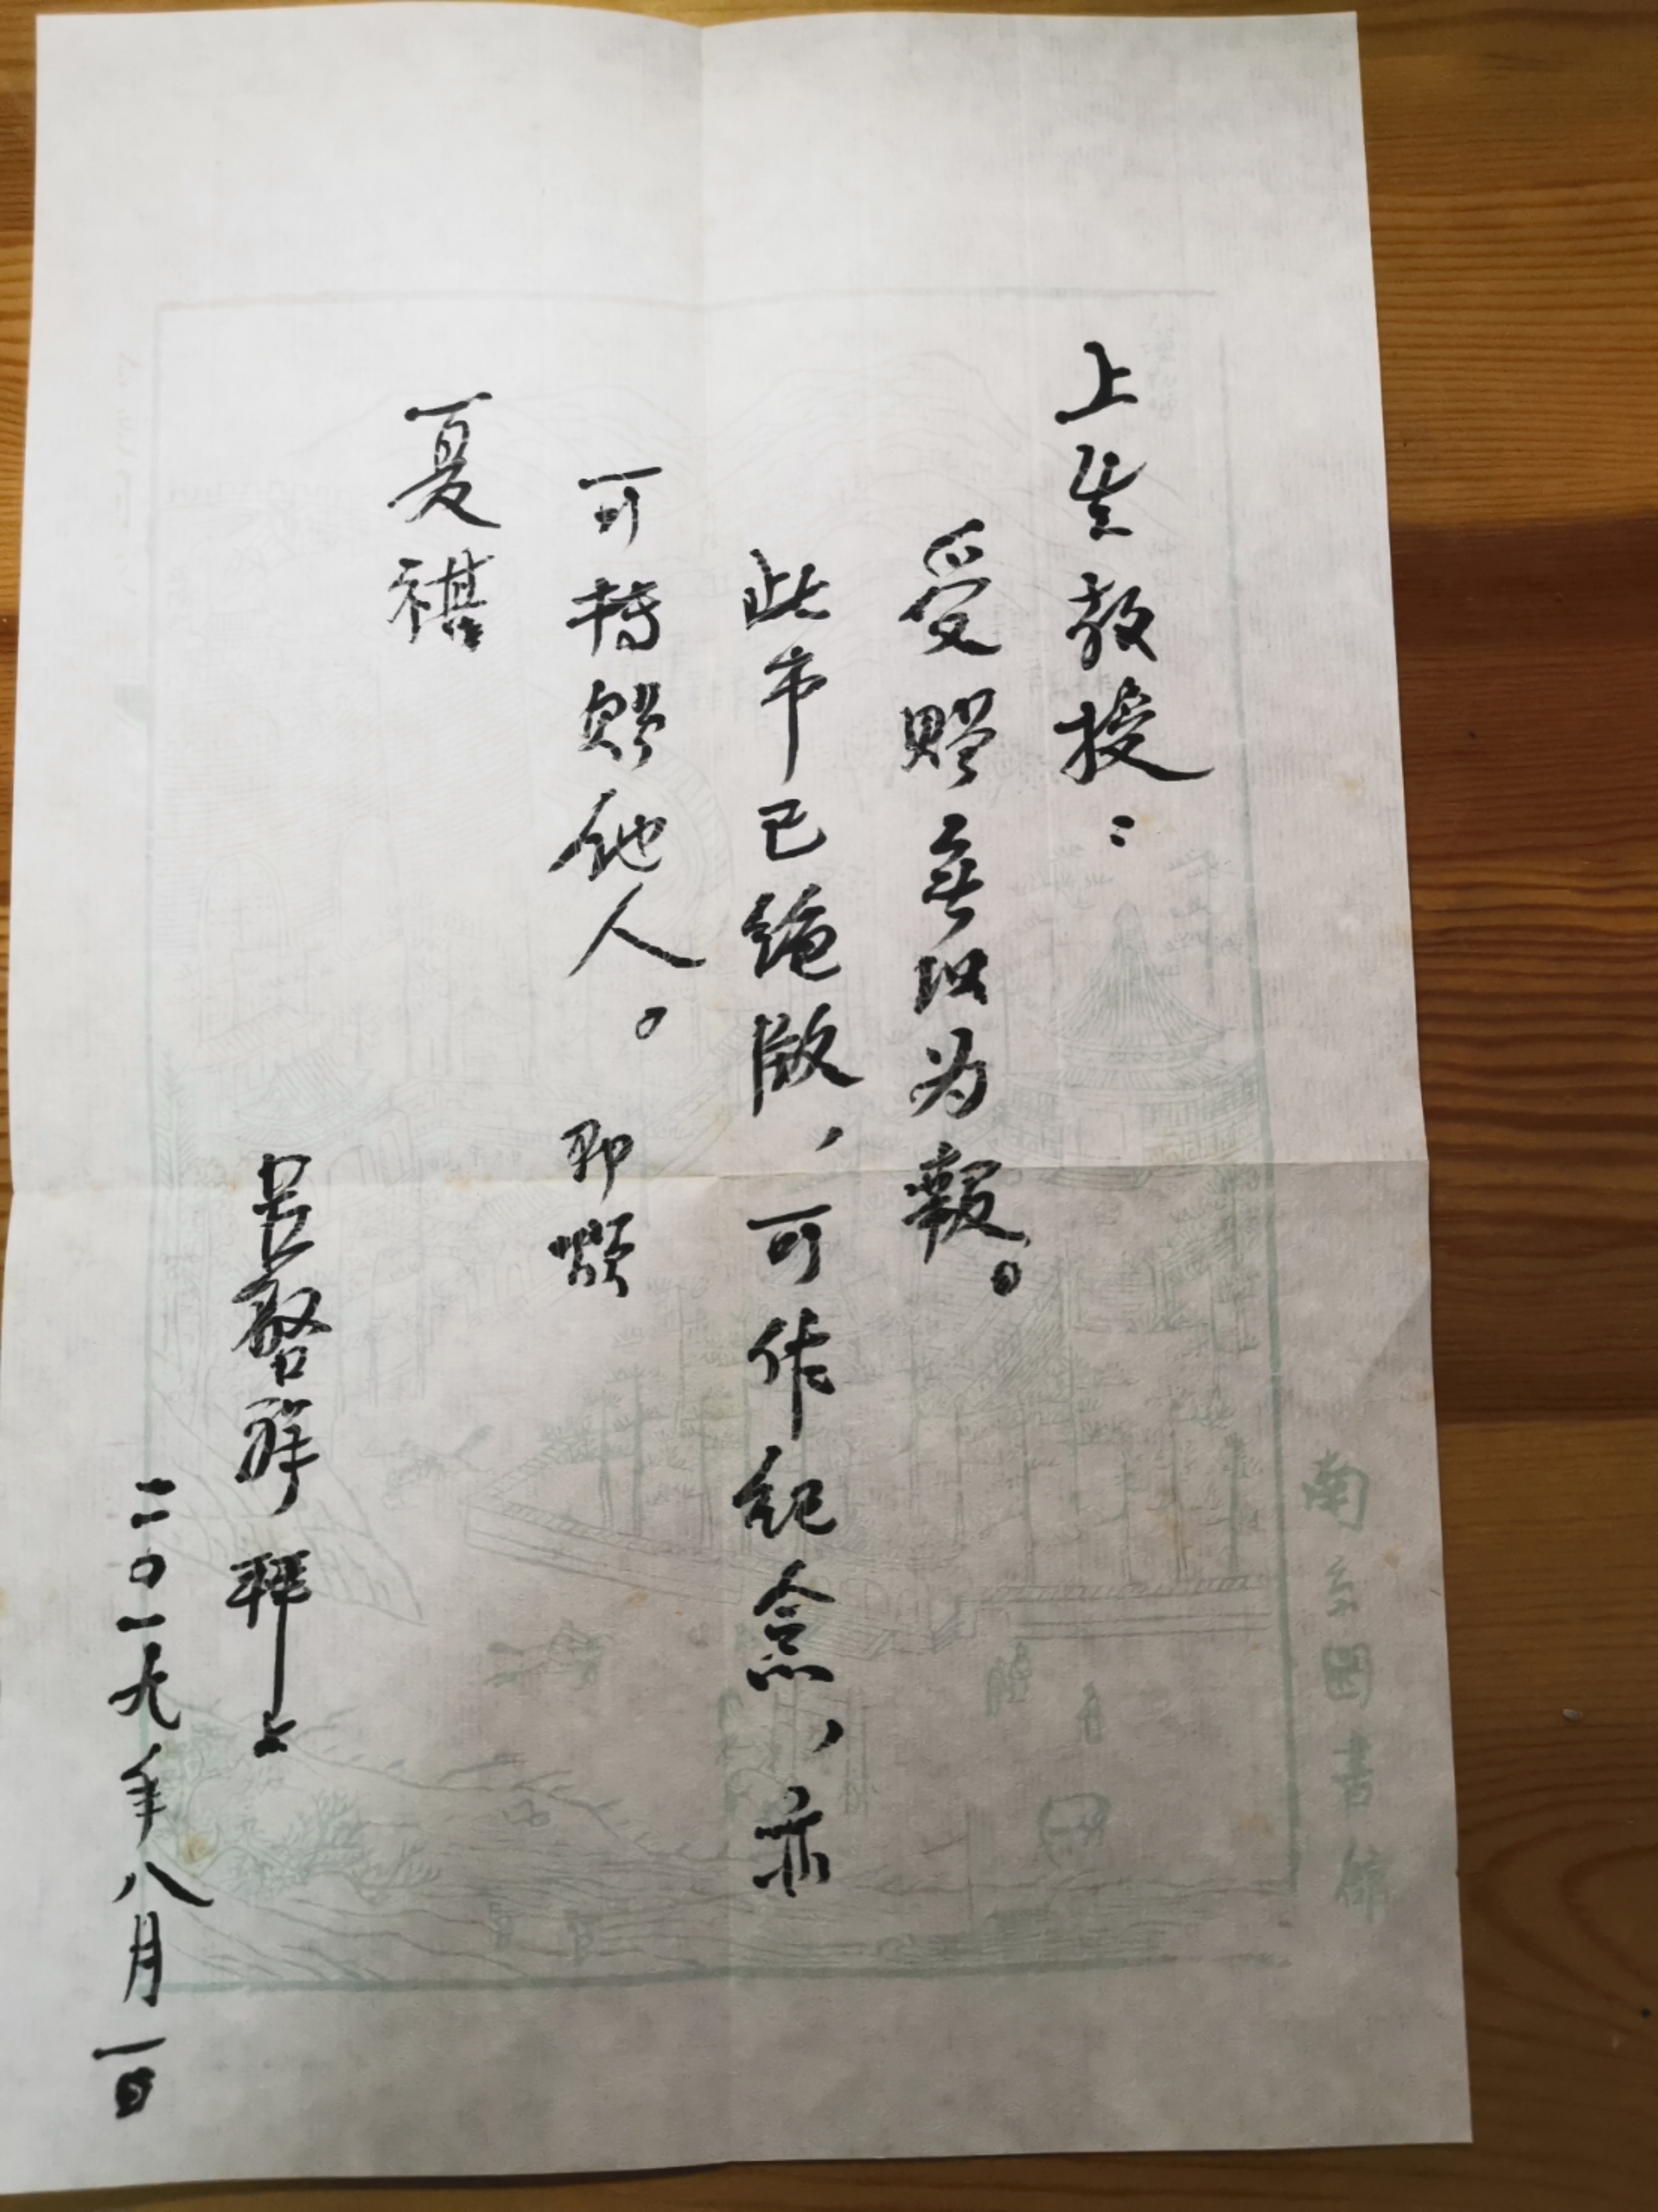 上生教授：
受赠無以为報。
此本已绝版，可作纪念，亦
可转赠他人。即颂
夏祺
吕啟祥 拜上
二〇一九年八月一日
南京图書館